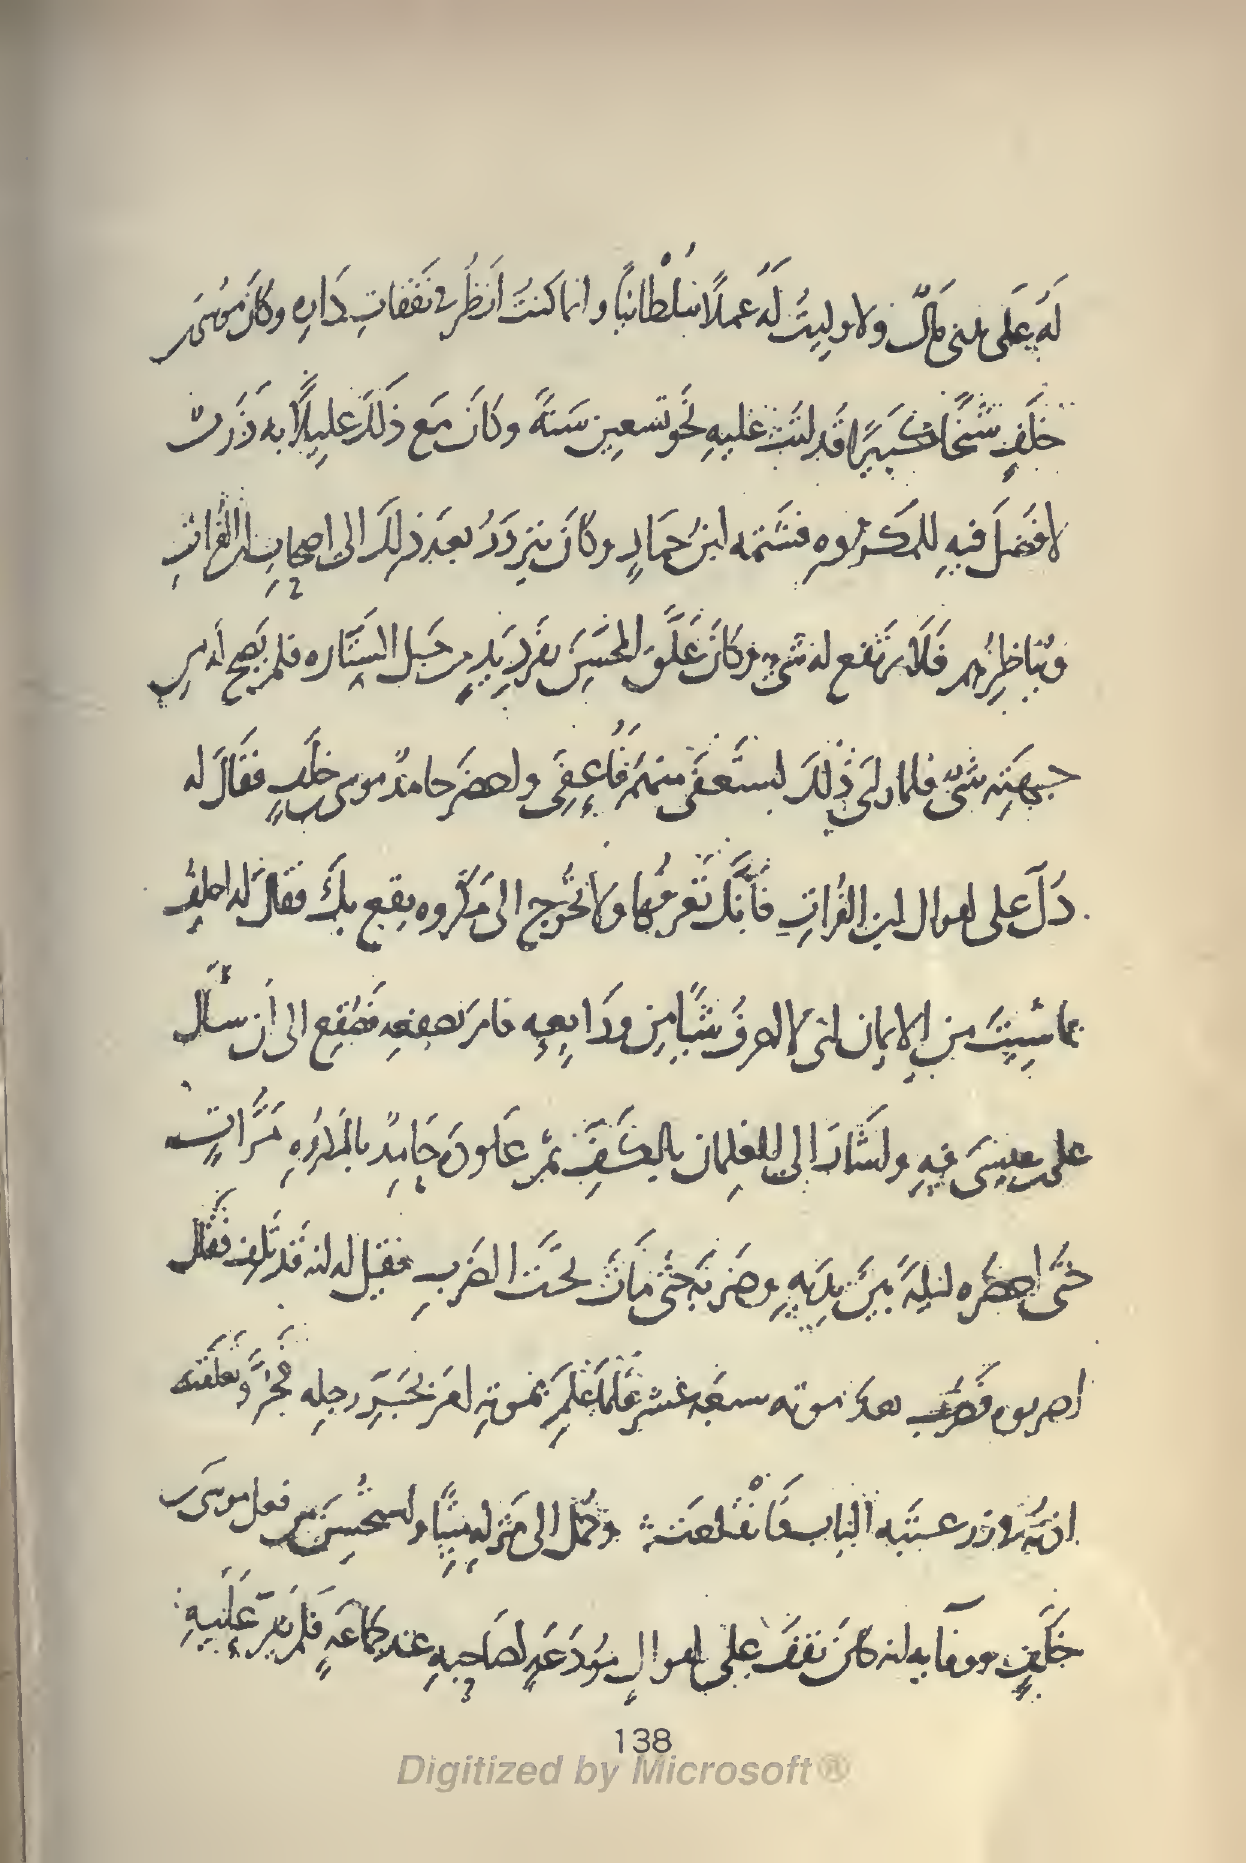 لَهُ عَلَى ابنى مَالٌ ولا وليتُ لَهُ عملًا سُلْطانيًّا وانما كنتُ انظُر فى نَفَقاتِ دَارِه وكانَ موسَى بن
خلَفٍ شَيْخًا كَبيرًا قَد اتَتْ عليهِ نَحو تسعين سَنَةً وكَانَ مَع ذَلكَ عليلًا به ذَرَبٌ
لا فَضلَ فيهِ للمَكروهِ فشَتمه ابنُ حمادٍ وكانَ يتردَدُ بعدَ ذلكَ الى اصحابِ ابن الفُراتِ
ويُناظِرُهُم فَلَا يرتَفع له شىءٌ وكانَ عَلَّقَ المُحَسِّنَ بفَردِ يَدٍ من حَبل السِّتاره فلم يَصح له من
جهَتِه شىءٌ فلما راى ذَلكَ استَعفَى منهم فَاُعِفىَ واحضرَ حامدٌ موسى بن خلَفٍ فقَالَ له
دُلَّ على اموال ابن الفُراتِ فانَّكَ تَعرفُها ولا تحُوج الى مَكروه يقع بكَ فقالَ له احلفُ
بما شئتَ من الايمان انى لا اعرفُ شيًا مِن ودَايعِه فامرَ بصفعِه فصُفِع الى ان سأل
على بن عيسَى فيهِ واشَارَ الى الغلمان بالكَفِّ ثم عَاودَ حَامِدٌ بالمكروهِ مَرَّاتٍ
حتَّى احضَره ليلةً بينَ يديهِ وضَربَه حَتَّى مَاتَ تحتَ الضَربِ فقيل له انه قَد تَلِف فقَال
اضربوه فَضُربَ بعدَ موته سبعَه عشر فلمَا عَلِمَ بموتِه امرَ بجَرِّ رجلِه فجُرَّ وتعلَّقت
اذنُه فى زر عتبَه البَاب فَانْقلعَت وحُمل الى مَنزلِه مَيِّتًا واستُحسِنَ من فعل موسى بن
خَلَفٍ ووفايه انه كانَ يَقفُ على اموالٍ مودَعَهٍ لصَاحبِه عند جَمَاعَهٍ فلم يقرَّ عَليهِ
138
Digitized by Microsoft®